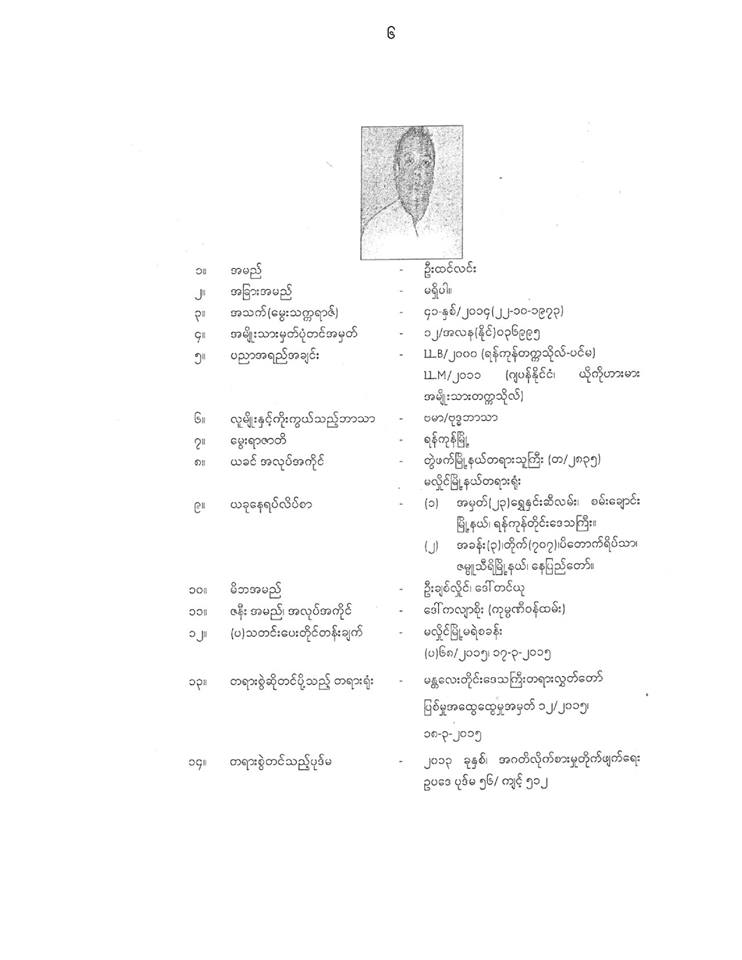 ၆
၁။ အမည် - ဦးထင်လင်း
၂။ အခြားအမည် - မရှိပါ။
၃။ အသက်(မွေးသက္ကရာဇ်) - ၄၁-နှစ်/၂၀၁၄(၂၂-၁၀-၁၉၇၃)
၄။ အမျိုးသားမှတ်ပုံတင်အမှတ် - ၁၂/အလန(နိုင်)၀၃၆၉၉၅
၅။ ပညာအရည်အချင်း - LL.B/၂၀၀၀ (ရန်ကုန်တက္ကသိုလ်-ပင်မ)
LL.M/၂၀၁၁ (ဂျပန်နိုင်ငံ၊ ယိုကိုဟားမား
အမျိုးသားတက္ကသိုလ်)
၆။ လူမျိုးနှင့်ကိုးကွယ်သည့်ဘာသာ - ဗမာ/ဗုဒ္ဓဘာသာ
၇။ မွေးရာဇာတိ - ရန်ကုန်မြို့
၈။ ယခင် အလုပ်အကိုင် - တွဲဖက်မြို့နယ်တရားသူကြီး (တ/၂၈၃၅)
မလှိုင်မြို့နယ်တရားရုံး
၉။ ယခုနေရပ်လိပ်စာ - (၁) အမှတ်(၂၃)ရွှေနှင်းဆီလမ်း၊ စမ်းချောင်း
မြို့နယ်၊ ရန်ကုန်တိုင်းဒေသကြီး။
(၂) အခန်း(၃)၊တိုက်(၇၀၇)၊ပိတောက်ရိပ်သာ၊
ဇမ္ဗူသီရိမြို့နယ်၊ နေပြည်တော်။
၁၀။ မိဘအမည် - ဦးချစ်လှိုင်၊ ဒေါ်တင်ယု
၁၁။ ဇနီး အမည်၊ အလုပ်အကိုင် - ဒေါ်ကလျာစိုး (ကုမ္ပဏီဝန်ထမ်း)
၁၂။ (ပ)သတင်းပေးတိုင်တန်းချက် - မလှိုင်မြို့မရဲစခန်း
(ပ)၆၈/၂၀၁၅၊ ၁၇-၃-၂၀၁၅
၁၃။ တရားစွဲဆိုတင်ပို့သည့် တရားရုံး - မန္တလေးတိုင်းဒေသကြီးတရားလွှတ်တော်
ပြစ်မှုအထွေထွေမှုအမှတ် ၁၂/၂၀၁၅၊
၁၈-၃-၂၀၁၅
၁၄။ တရားစွဲတင်သည့်ပုဒ်မ - ၂၀၁၃ ခုနှစ်၊ အဂတိလိုက်စားမှုတိုက်ဖျက်ရေး
ဥပဒေ ပုဒ်မ ၅၆/ ကျင့် ၅၁၂